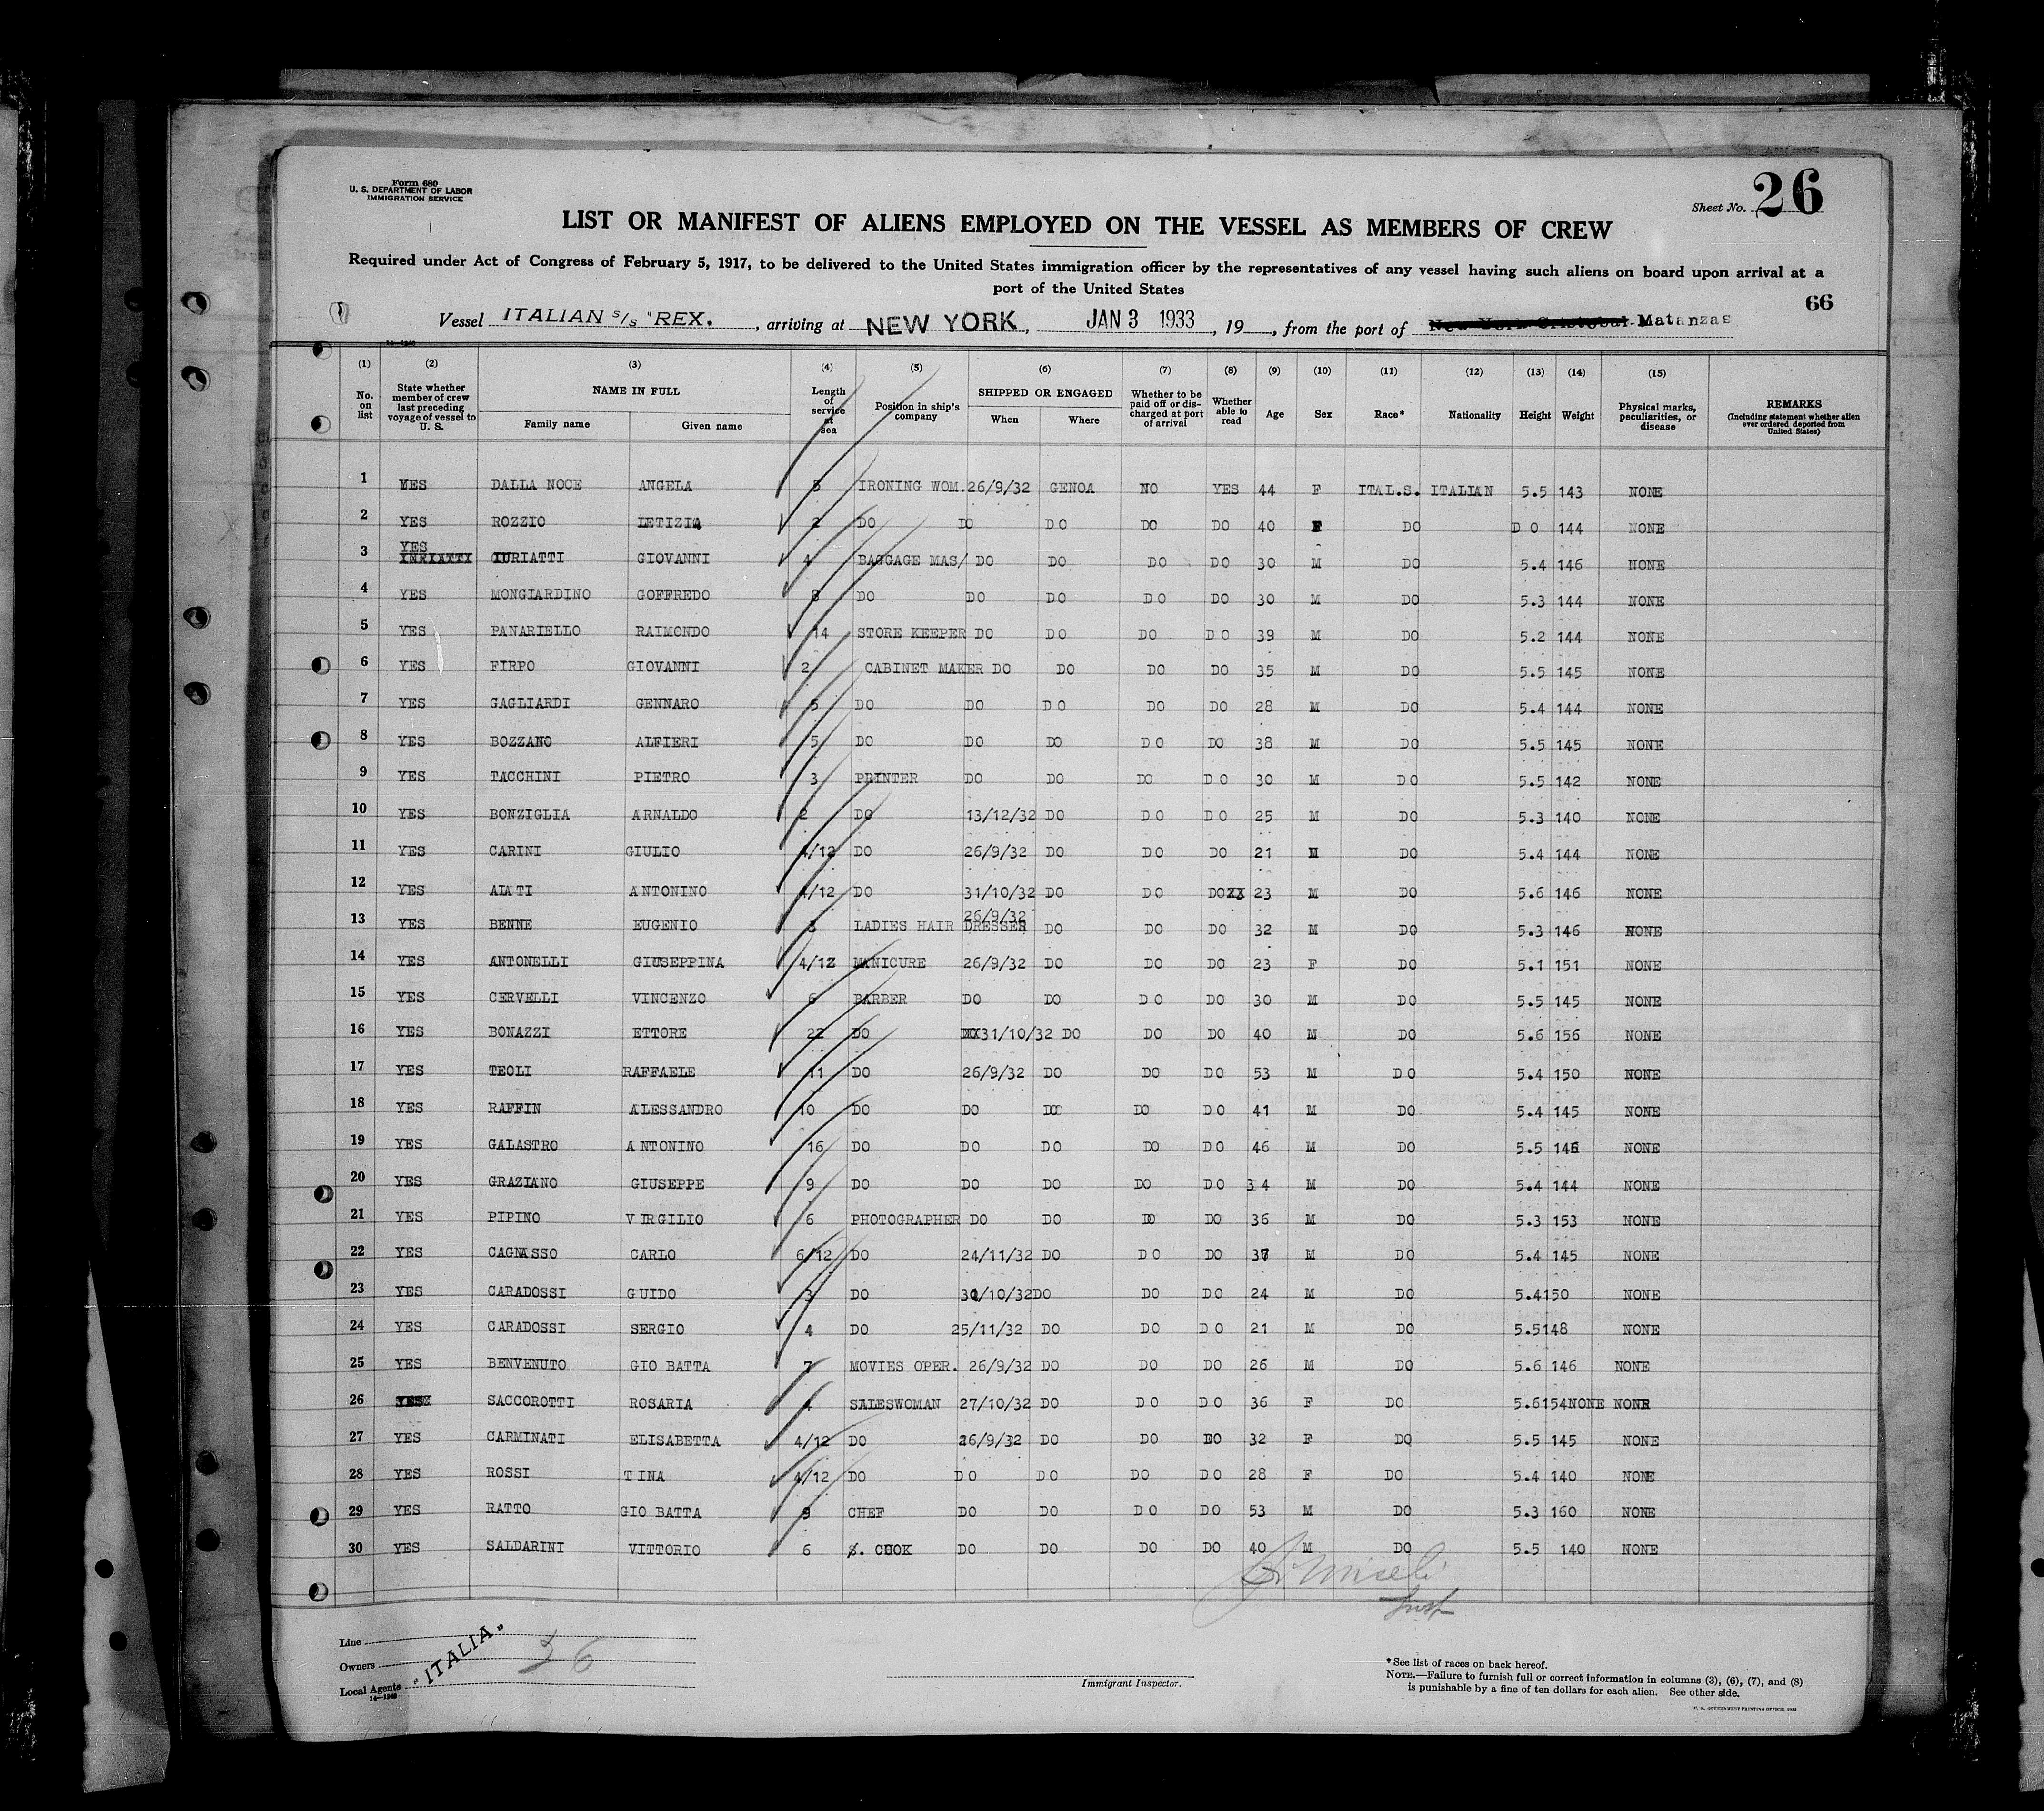 Form 680
U. S. DEPARTMENT OF LABOR
IMMIGRATION SERVICE
Sheet No. 26
LIST OR MANIFEST OF ALIENS EMPLOYED ON THE VESSEL AS MEMBERS OF CREW
Required under Act of Congress of February 5, 1917, to be delivered to the United States immigration officer by the representatives of any vessel having such aliens on board upon arrival at a
port of the United States
66
Vessel ITALIAN S/S "REX. , arriving at NEW YORK , JAN 3 1933 , 19 , from the port of New York Cristobal Matanzas
14—1240
(1) (2) (3) (4) (5) (6) (7) (8) (9) (10) (11) (12) (13) (14) (15)
No. on list | State whether member of crew last preceding voyage of vessel to U. S. | NAME IN FULL Family name Given name | Length of service at sea | Position in ship's company | SHIPPED OR ENGAGED When Where | Whether to be paid off or discharged at port of arrival | Whether able to read | Age | Sex | Race* | Nationality | Height | Weight | Physical marks, peculiarities, or disease | REMARKS (Including statement whether alien ever ordered deported from United States)
1 YES DALLA NOCE ANGELA 5 IRONING WOM. 26/9/32 GENOA NO YES 44 F ITAL.S. ITALIAN 5.5 143 NONE
2 YES ROZZIO LETIZIA 2 DO DO DO DO DO 40 F DO DO 144 NONE
3 YES IURIATTI GIOVANNI 4 BAGGAGE MAS/ DO DO DO DO 30 M DO 5.4 146 NONE
4 YES MONGIARDINO GOFFREDO 8 DO DO DO DO DO 30 M DO 5.3 144 NONE
5 YES PANARIELLO RAIMONDO 14 STORE KEEPER DO DO DO DO 39 M DO 5.2 144 NONE
6 YES FIRPO GIOVANNI 2 CABINET MAKER DO DO DO DO 35 M DO 5.5 145 NONE
7 YES GAGLIARDI GENNARO 5 DO DO DO DO DO 28 M DO 5.4 144 NONE
8 YES BOZZANO ALFIERI 5 DO DO DO DO DO 38 M DO 5.5 145 NONE
9 YES TACCHINI PIETRO 3 PRINTER DO DO DO DO 30 M DO 5.5 142 NONE
10 YES BONZIGLIA ARNALDO 2 DO 13/12/32 DO DO DO 25 M DO 5.3 140 NONE
11 YES CARINI GIULIO 4/12 DO 26/9/32 DO DO DO 21 M DO 5.4 144 NONE
12 YES AIATI ANTONINO 4/12 DO 31/10/32 DO DO DOXX 23 M DO 5.6 146 NONE
13 YES BENNE EUGENIO 3 LADIES HAIR DRESSER 26/9/32 DO DO DO 32 M DO 5.3 146 NONE
14 YES ANTONELLI GIUSEPPINA 4/12 MANICURE 26/9/32 DO DO DO 23 F DO 5.1 151 NONE
15 YES CERVELLI VINCENZO 6 BARBER DO DO DO DO 30 M DO 5.5 145 NONE
16 YES BONAZZI ETTORE 22 DO XX31/10/32 DO DO DO 40 M DO 5.6 156 NONE
17 YES TEOLI RAFFAELE 11 DO 26/9/32 DO DO DO 53 M DO 5.4 150 NONE
18 YES RAFFIN ALESSANDRO 10 DO DO DO DO DO 41 M DO 5.4 145 NONE
19 YES GALASTRO ANTONINO 16 DO DO DO DO DO 46 M DO 5.5 146 NONE
20 YES GRAZIANO GIUSEPPE 9 DO DO DO DO DO 34 M DO 5.4 144 NONE
21 YES PIPINO VIRGILIO 6 PHOTOGRAPHER DO DO DO DO 36 M DO 5.3 153 NONE
22 YES CAGNASSO CARLO 6/12 DO 24/11/32 DO DO DO 37 M DO 5.4 145 NONE
23 YES CARADOSSI GUIDO 3 DO /10/32 DO DO DO 24 M DO 5.4 150 NONE
24 YES CARADOSSI SERGIO 4 DO 25/11/32 DO DO DO 21 M DO 5.5 148 NONE
25 YES BENVENUTO GIO BATTA 7 MOVIES OPER. 26/9/32 DO DO DO 26 M DO 5.6 146 NONE
26 YES SACCOROTTI ROSARIA 4 SALESWOMAN 27/10/32 DO DO DO 36 F DO 5.6 154 NONE NONE
27 YES CARMINATI ELISABETTA 4/12 DO 26/9/32 DO DO DO 32 F DO 5.5 145 NONE
28 YES ROSSI TINA 4/12 DO DO DO DO DO 28 F DO 5.4 140 NONE
29 YES RATTO GIO BATTA 9 CHEF DO DO DO DO 53 M DO 5.3 160 NONE
30 YES SALDARINI VITTORIO 6 S. COOK DO DO DO DO 40 M DO 5.5 140 NONE
Line
Owners "ITALIA" 36
Local Agents
14—1240
Immigrant Inspector.
*See list of races on back hereof.
NOTE.—Failure to furnish full or correct information in columns (3), (6), (7), and (8)
is punishable by a fine of ten dollars for each alien. See other side.